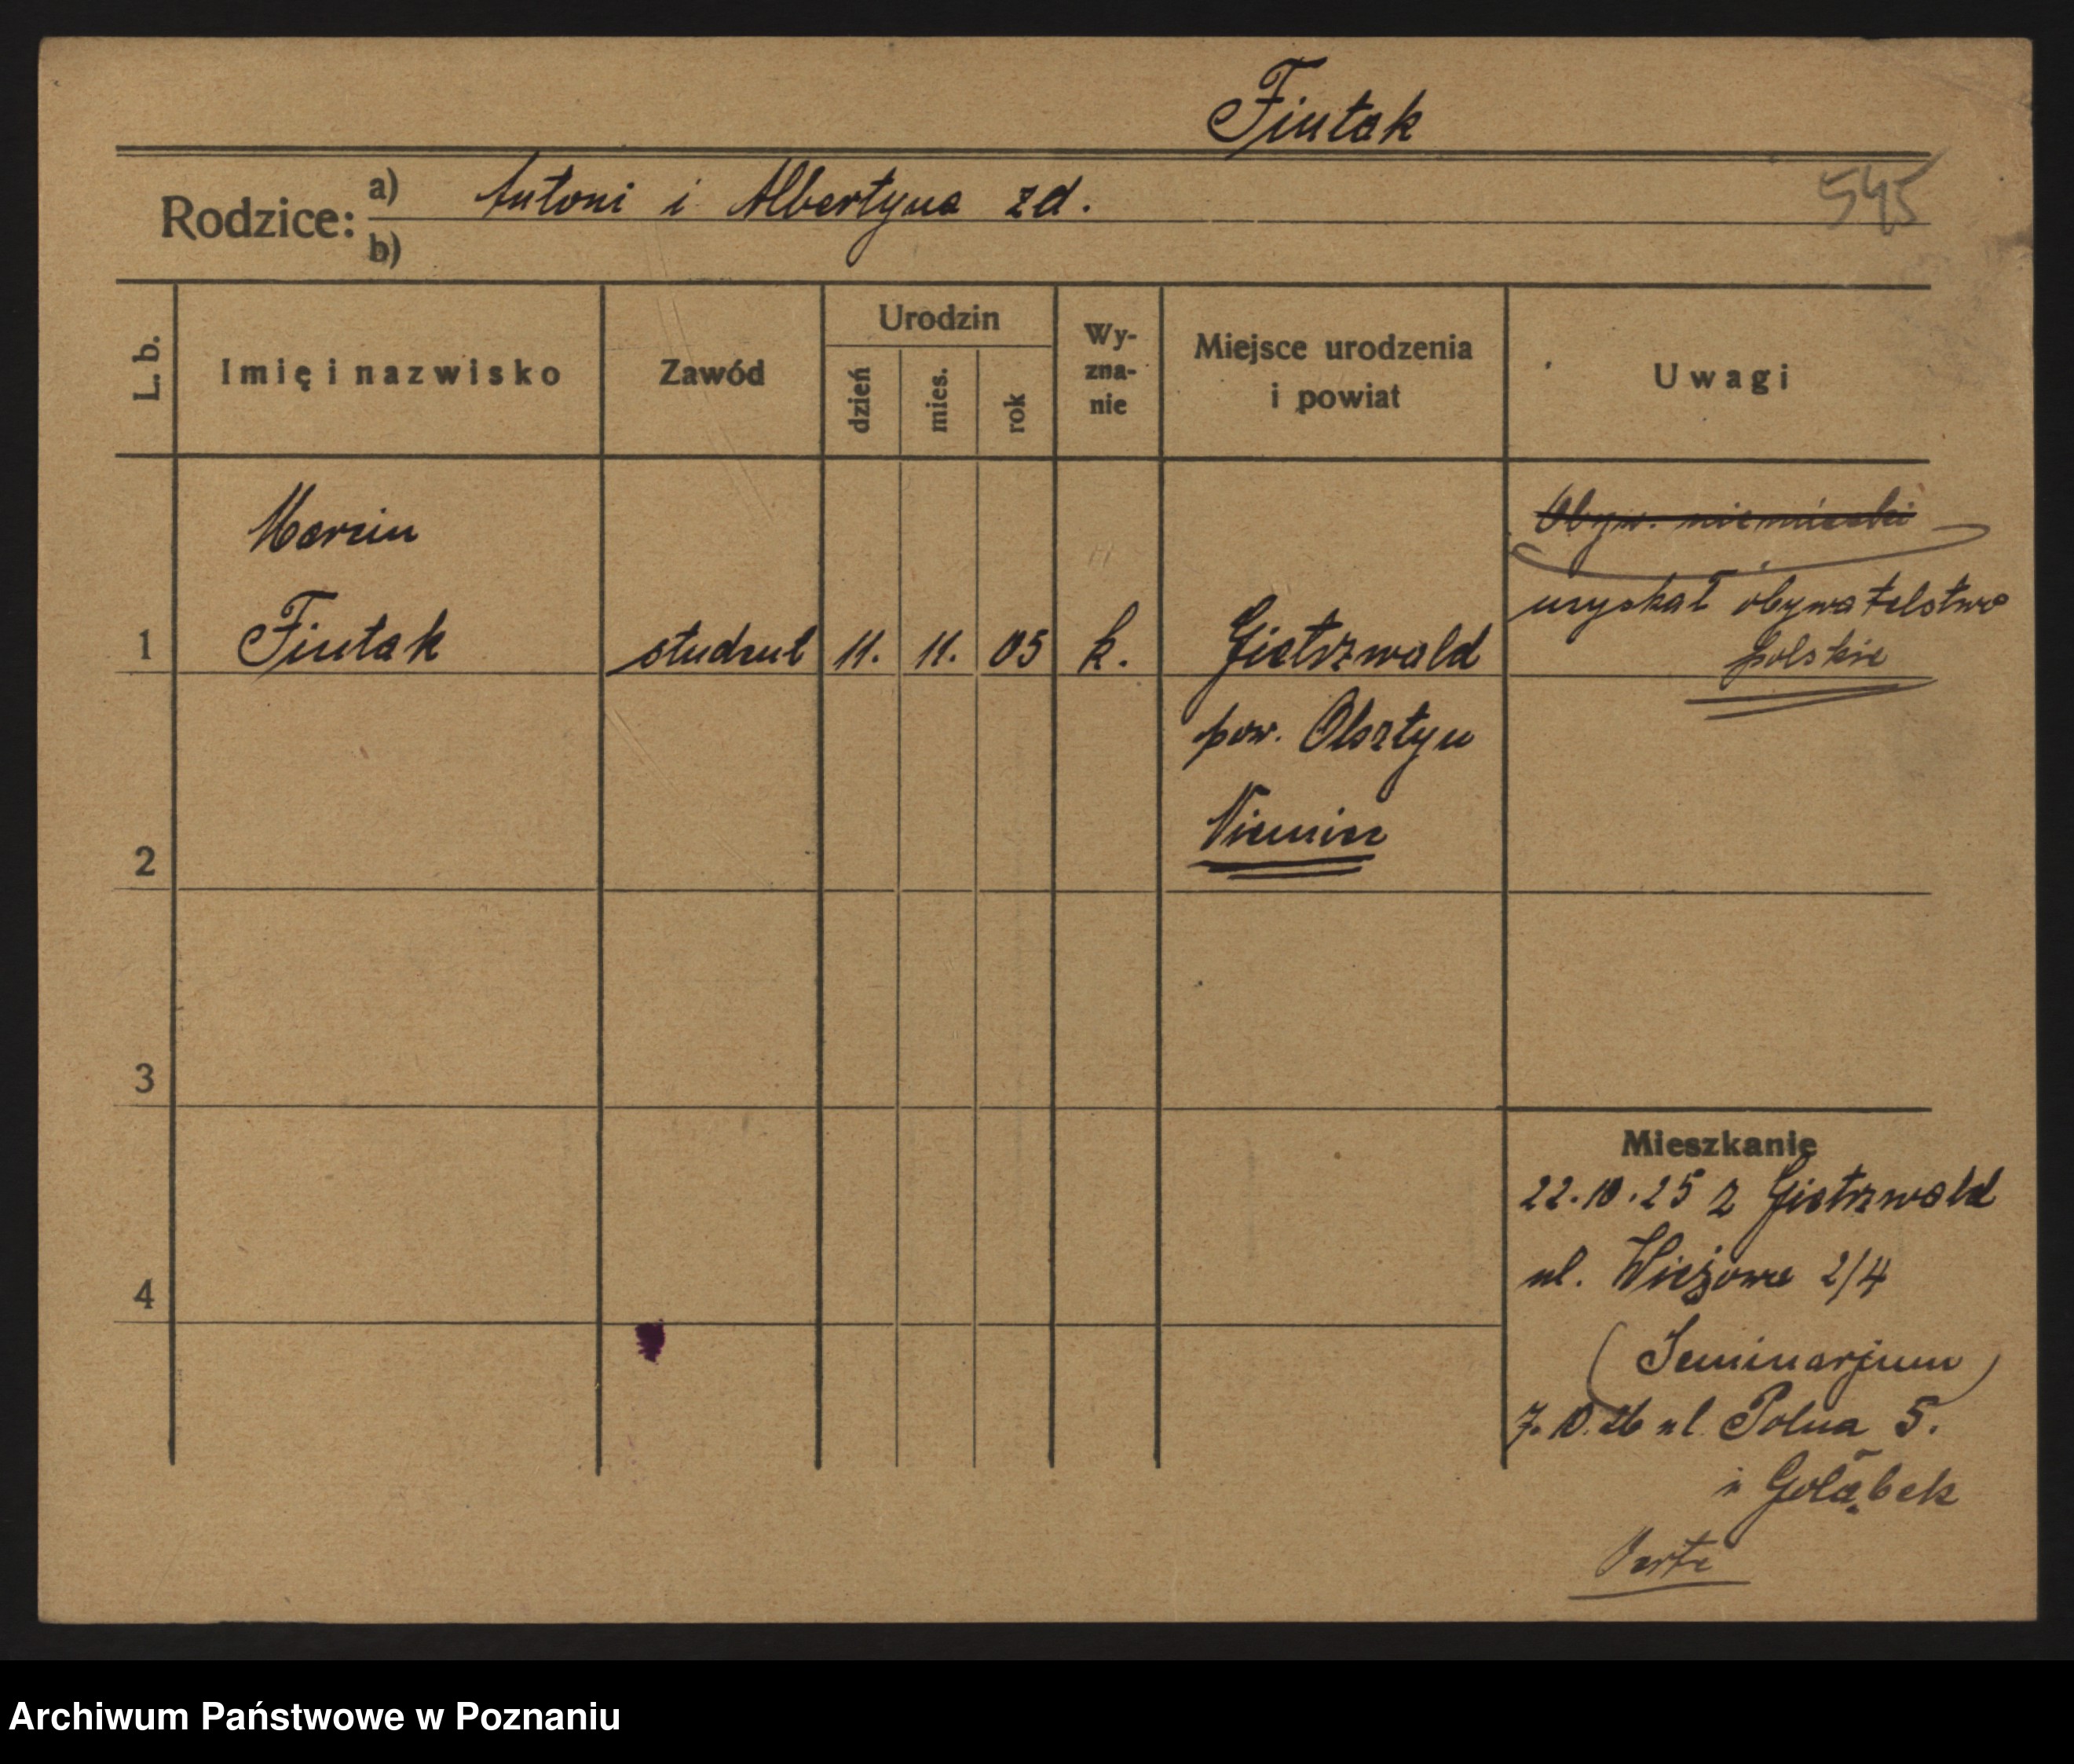 Fiutak
545
Rodzice: a) Antoni i Albertyna zd.
b)
L. b.
Imię i nazwisko
Zawód
Urodzin
dzień
mies.
rok
Wy-
zna-
nie
Miejsce urodzenia
i powiat
Uwagi
Obyw. niemiecki
Marcin
uzyskał obywatelstwo
1 Fiutak student 11. 11. 05 k. Gietrzwald polskie
pow. Olsztyn
Niemiec
2
3
4
Mieszkanie
22.10.25 z Gietrzwald
ul. Wieżowa 2/4
(Seminarjum)
7.10.26 ul Polna 5.
Gołąbek
Verte
Archiwum Państwowe w Poznaniu